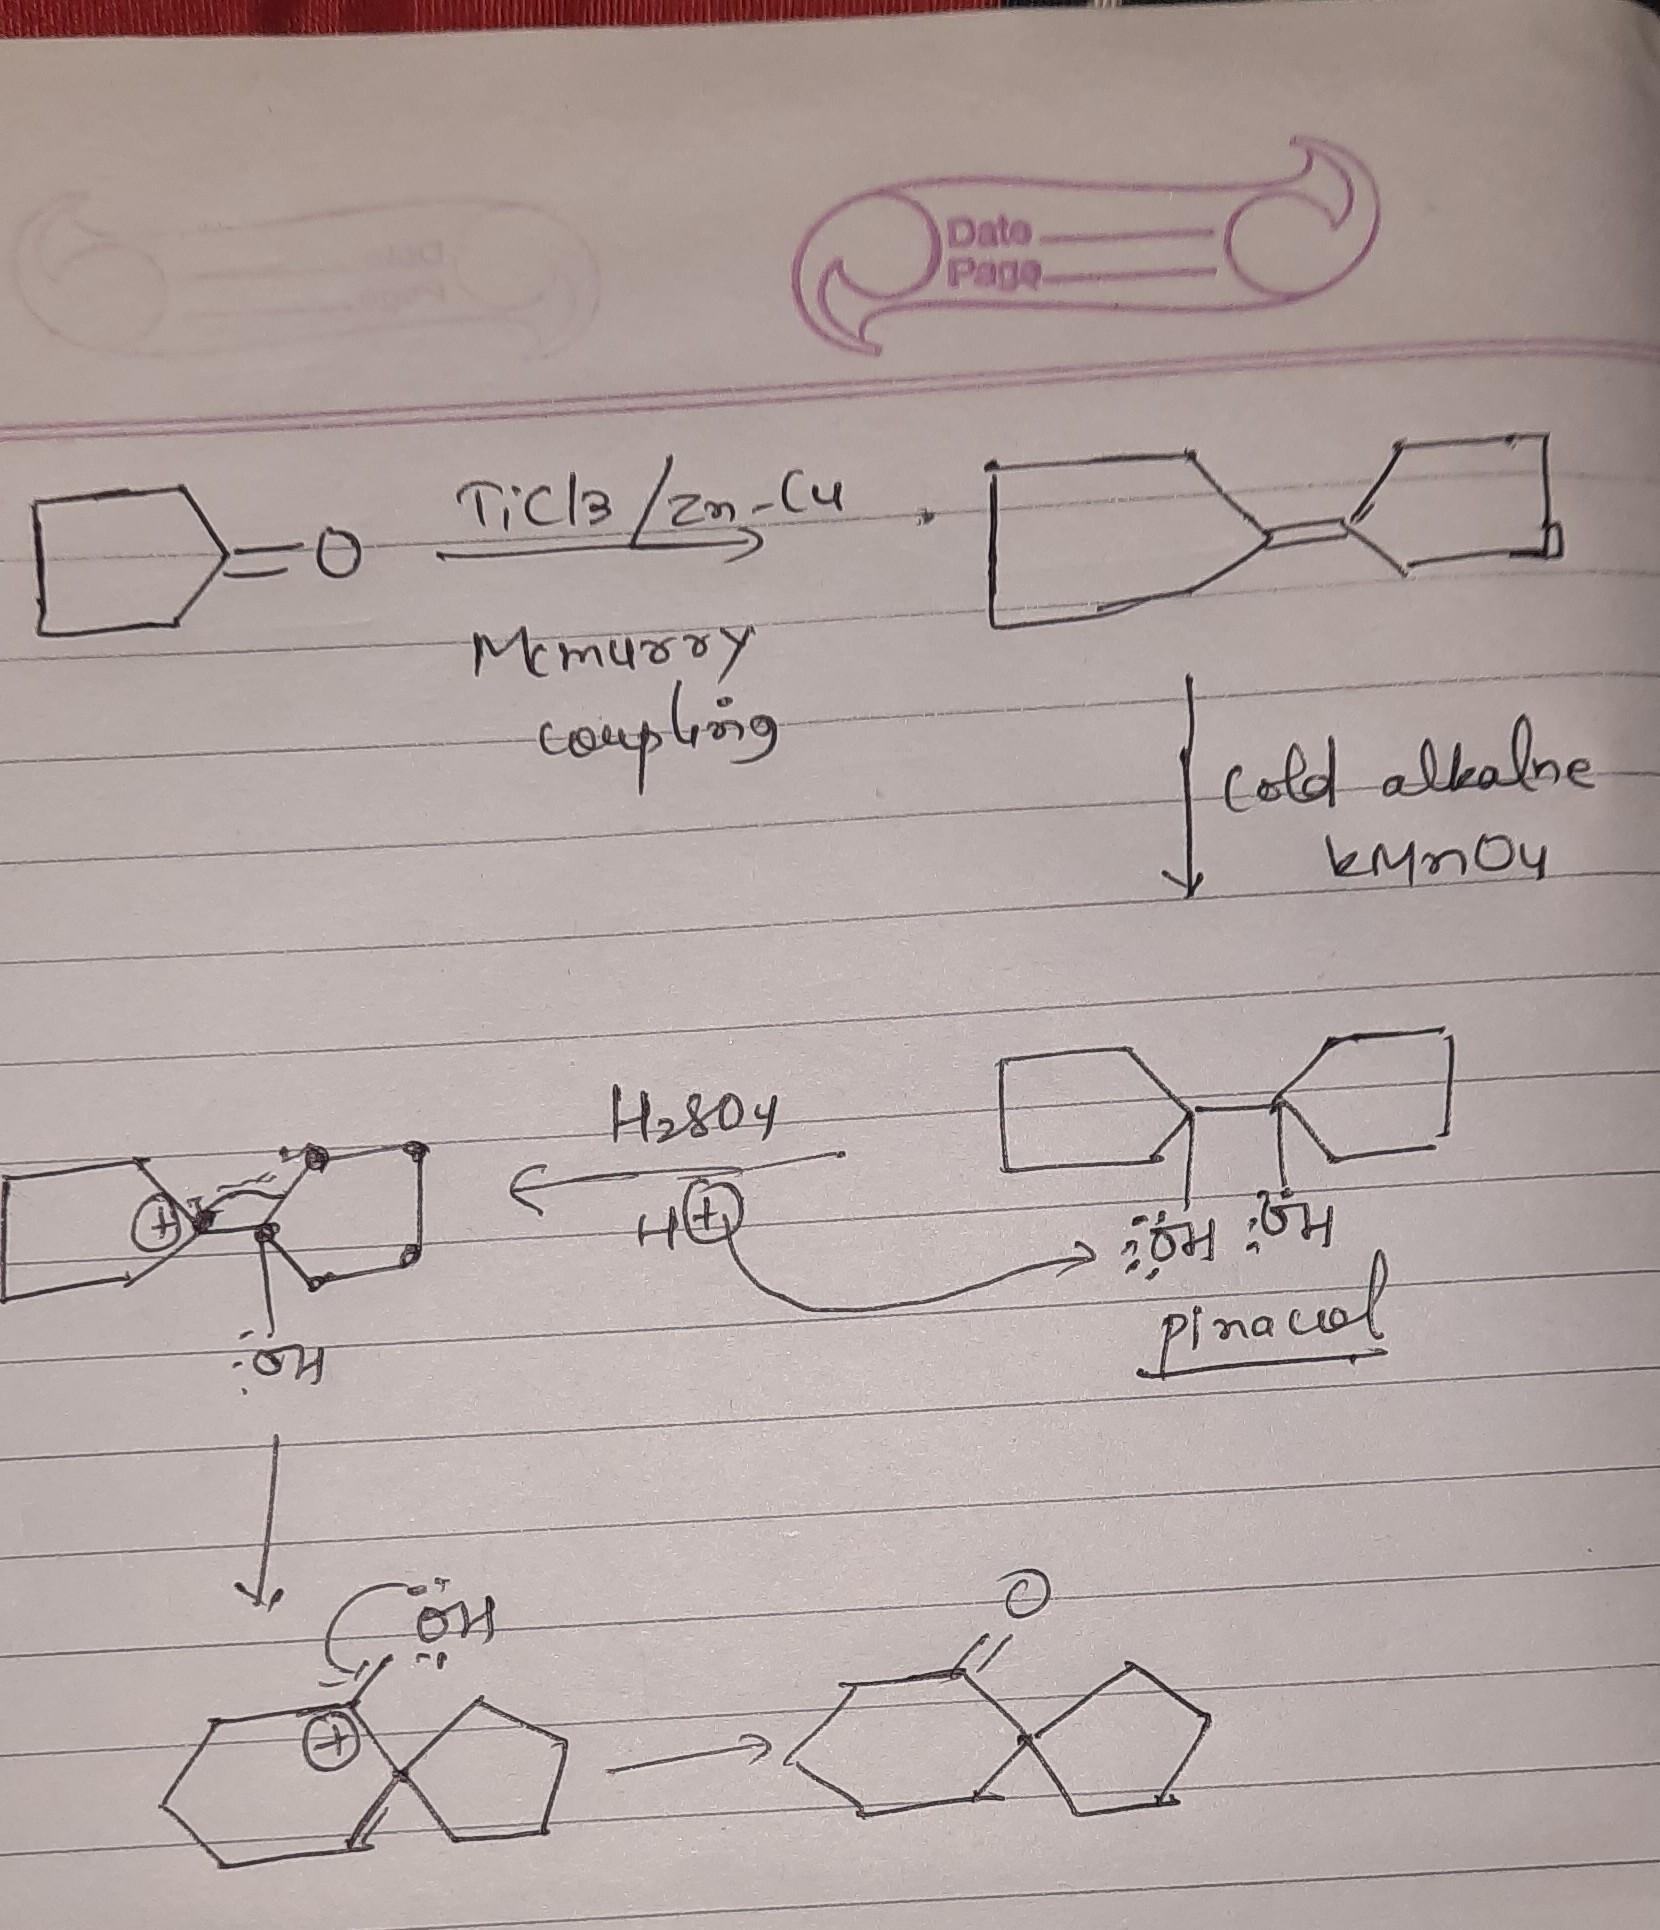 Date
Page
O
TiCl3/Zn-Cu
Mcmurry
coupling
Cold alkalne
KMnO4
H2SO4
H+
OH OH
pinacol
+
OH
OH
+
O